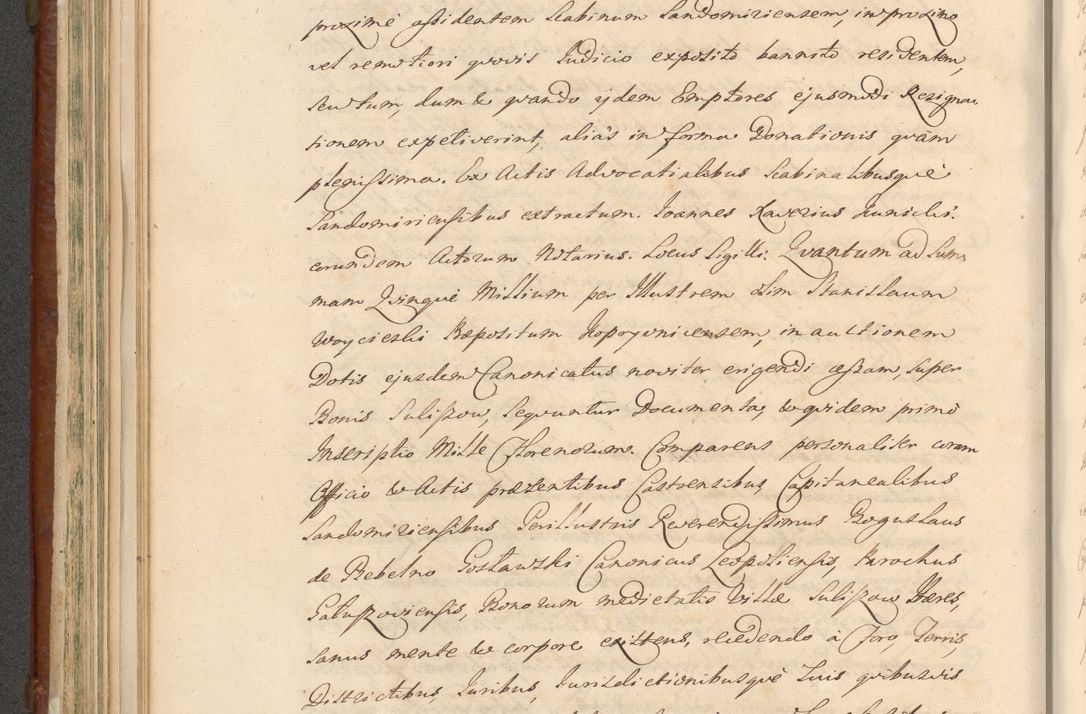 proximè assidentem Scabinum Sandomiriensem, in proximo
vel remotiori quovis Judicio exposito bannito residentem,
seu tum, dum & quando ijdem Emptores ejusmodi Resigna-
tionem expetiverint, aliàs in forma Donationis quàm
plenissima. Ex Actis Advocatialibus Scabinalibusquè
Sandomiriensibus extractum. Joannes Xaverius Kunicki.
eorundem Actorum Notarius. Locus Sigilli. Quantum ad Sum-
mam Quinquè Millium per Illustrem olim Stanislaum
Woycieski Præpositum Koprzywnicensem, in auctionem
Dotis ejusdem Canonicatus noviter erigendi cessam, super
Bonis Suliszow, sequuntur Documenta, & quidem primò
Inscriptio Mille Florenorum. Comparens personaliter coram
Officio & Actis præsentibus Castrensibus Capitanealibus
Sandomiriensibus Perillustris Reverendissimus Boguslaus
de Bebelno Gosławski Canonicus Leopoliensis, Parochus
Gałuszoviensis, Bonorum medietatis Villæ Suliszow Hæres,
sanus mente & corpore existens, recedendo à Foro, Terris,
Districtibus, Juribus, Jurisdictionibusquè suis quibusvis